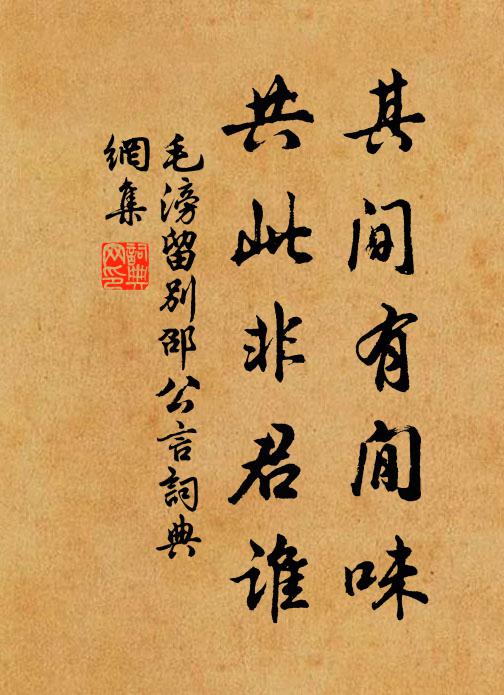 其間有閒味
共此非君誰
毛滂留別邵公言詞典
網集
詞典
网印